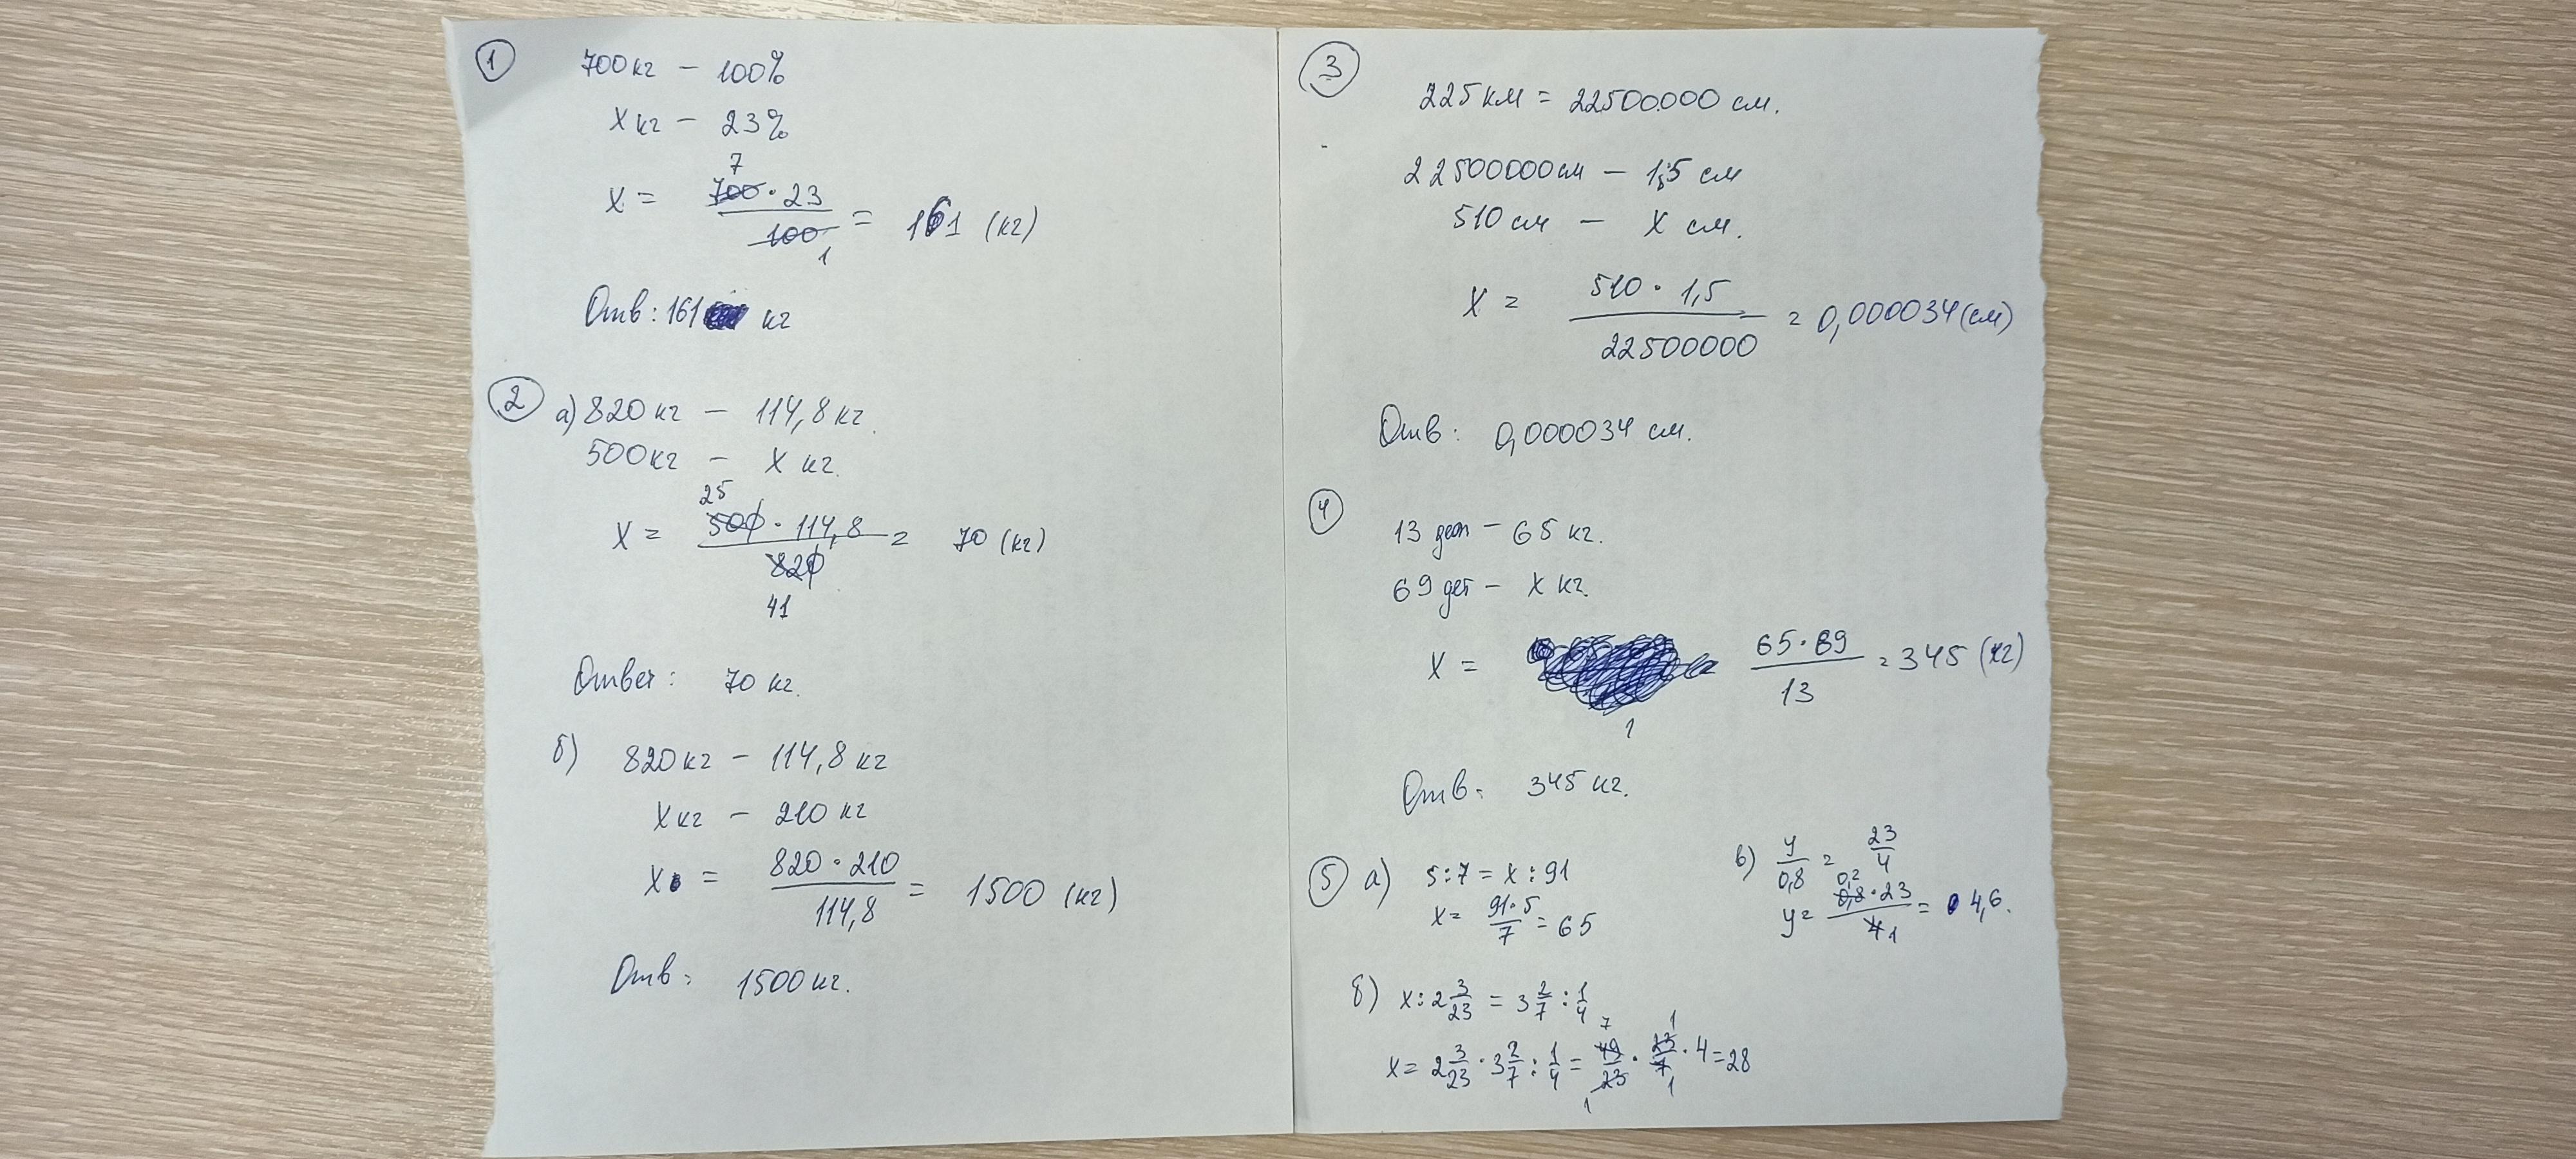 1
700 кг - 100%
X кг - 23%
7
X = 700 · 23 / 100 = 161 (кг)
1
Отв: 161 кг
2
а) 820 кг - 114,8 кг.
500 кг - X кг.
25
X = 500 · 114,8 / 820 = 70 (кг)
41
Ответ: 70 кг.
б) 820 кг - 114,8 кг
X кг - 210 кг
X = 820 · 210 / 114,8 = 1500 (кг)
Отв: 1500 кг.
3
225 км = 22500000 см.
22500000 см - 1,5 см
510 см - X см.
X = 510 · 1,5 / 22500000 = 0,000034 (см)
Отв: 0,000034 см.
4
13 дет - 65 кг.
69 дет - X кг.
X = 65 · 69 / 13 = 345 (кг)
1
Отв: 345 кг.
5
а) 5 : 7 = x : 91
x = 91 · 5 / 7 = 65
в) y / 0,8 = 23 / 4
0,2
y = 0,8 · 23 / 4 = 4,6.
1
б) x : 2 3/23 = 3 2/7 : 1/4
7 1
x = 2 3/23 · 3 2/7 : 1/4 = 49/23 · 23/7 · 4 = 28
1 1